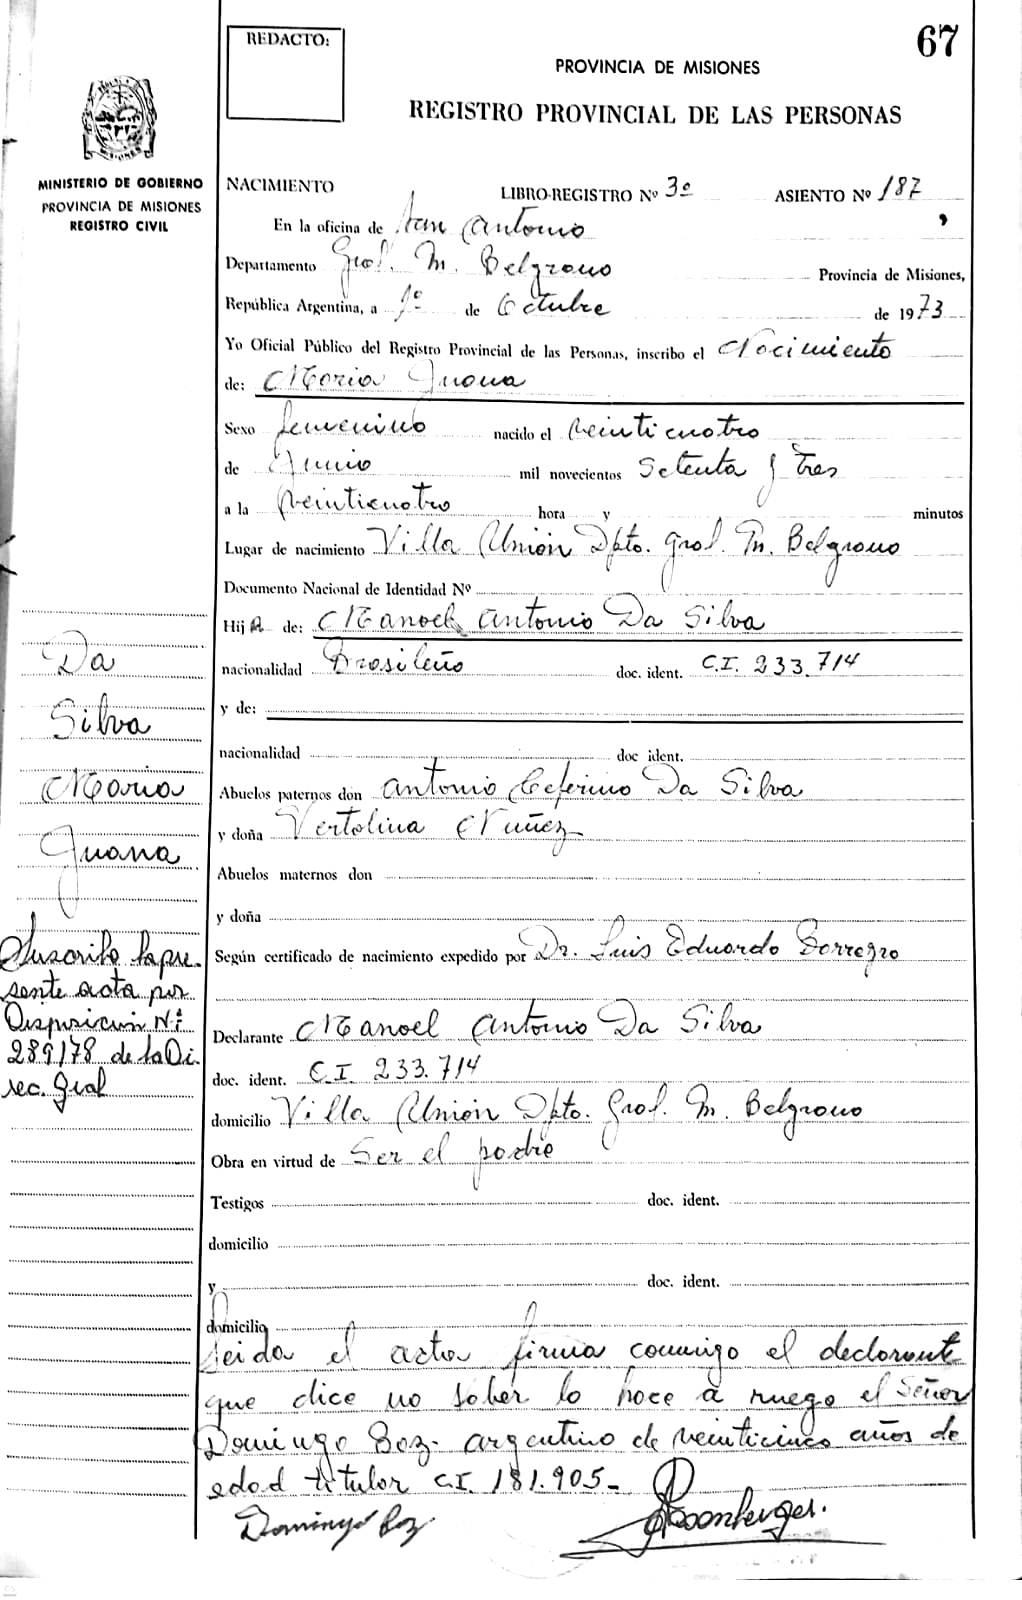 67
REDACTO:
PROVINCIA DE MISIONES
REGISTRO PROVINCIAL DE LAS PERSONAS
MINISTERIO DE GOBIERNO
PROVINCIA DE MISIONES
REGISTRO CIVIL
NACIMIENTO
LIBRO-REGISTRO Nº 3º ASIENTO Nº 187,
En la oficina de San Antonio
Departamento Gral. M. Belgrano Provincia de Misiones,
República Argentina, a 1º de Octubre de 1973
Yo Oficial Público del Registro Provincial de las Personas, inscribo el Nacimiento
de: Maria Juana
Sexo femenino nacido el veinticuatro
de Junio mil novecientos Setenta y tres
a la veinticuatro hora y minutos
Lugar de nacimiento Villa Unión Dpto. Gral. M. Belgrano
Documento Nacional de Identidad Nº
Hija de: Manoel Antonio Da Silva
nacionalidad Brasileño doc. ident. C.I. 233.714
y de:
nacionalidad doc ident.
Abuelos paternos don Antonio Ceferino Da Silva
y doña Vertolina Nuñez
Abuelos maternos don
y doña
Según certificado de nacimiento expedido por Dr. Luis Eduardo
Declarante Manoel Antonio Da Silva
doc. ident. C.I. 233.714
domicilio Villa Unión Dpto. Gral. M. Belgrano
Obra en virtud de Ser el padre
Testigos doc. ident.
domicilio
y doc. ident.
domicilio
Leida el acta firma conmigo el declarante
que dice no saber lo hace a ruego el Señor
Domingo Boz. argentino de veinticinco años de
edad titular C.I. 181.905-
Domingo Boz
Da
Silva
Maria
Juana
Suscrito la pre-
sente acta por
Disposición Nº
289/78 de la Di-
rec. Gral